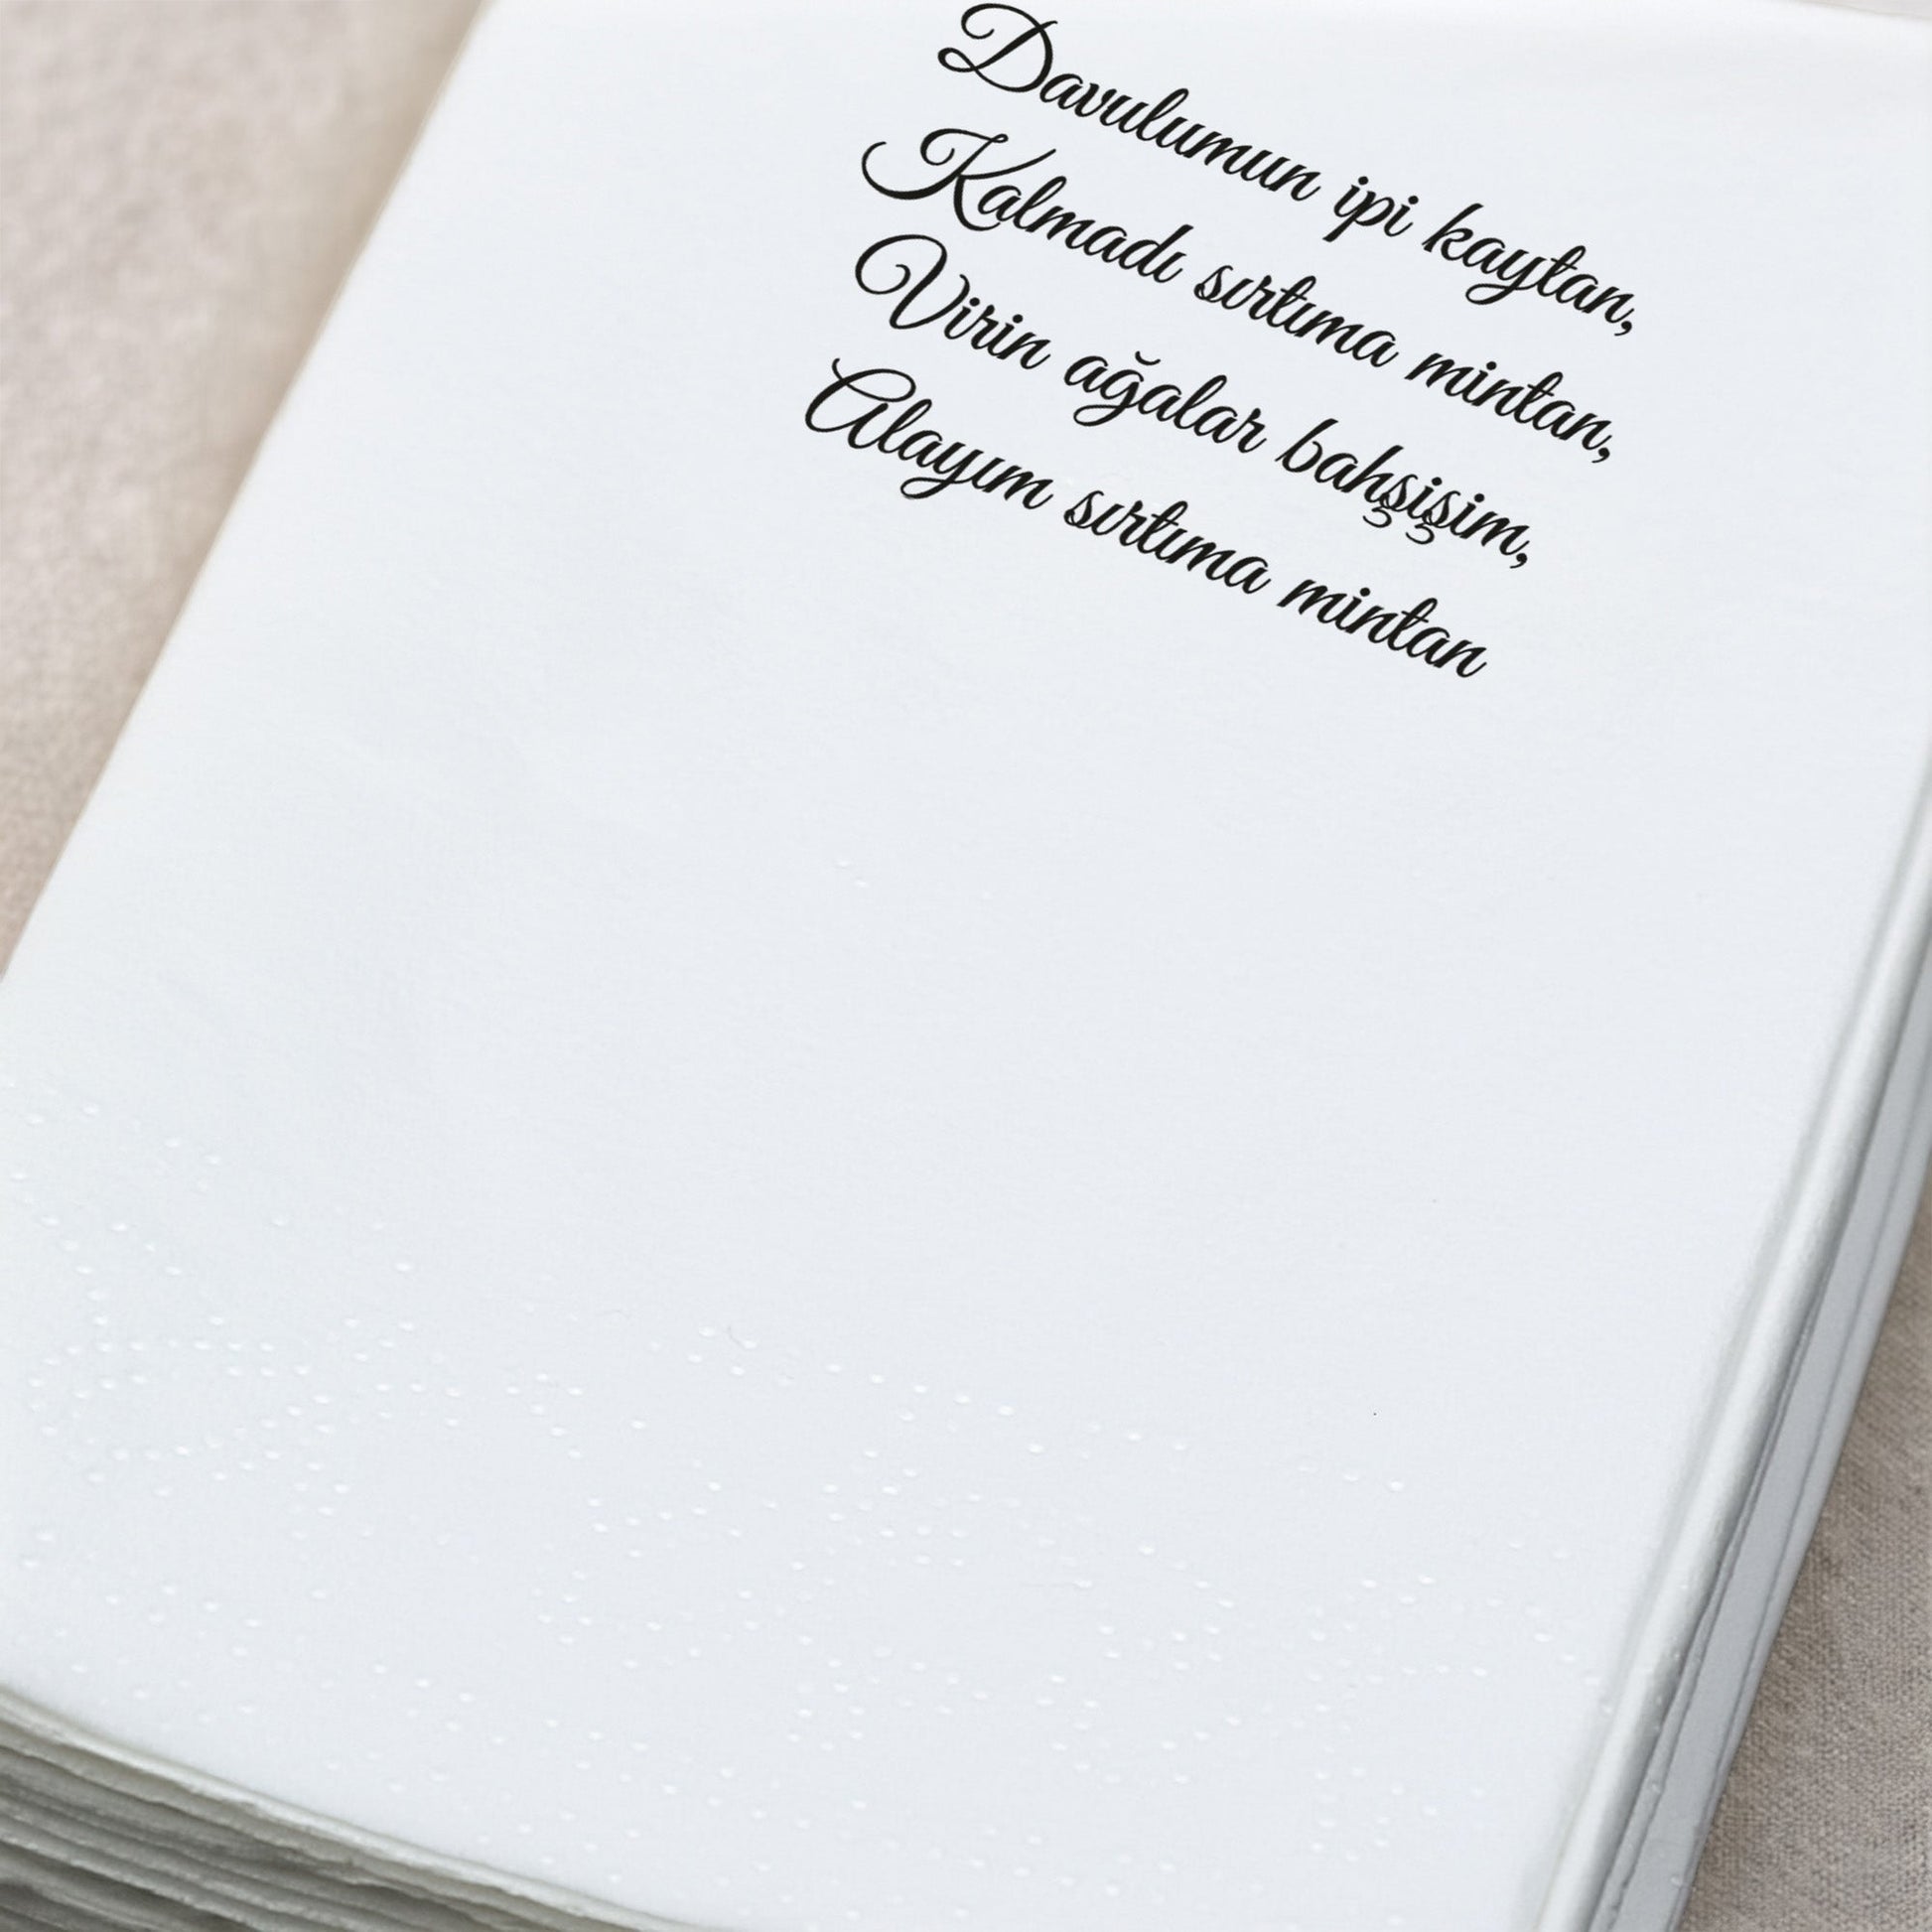 Davulumun ipi kaytan,
Kalmadı sırtıma mintan,
Virin ağalar bahşişim,
Alayım sırtıma mintan